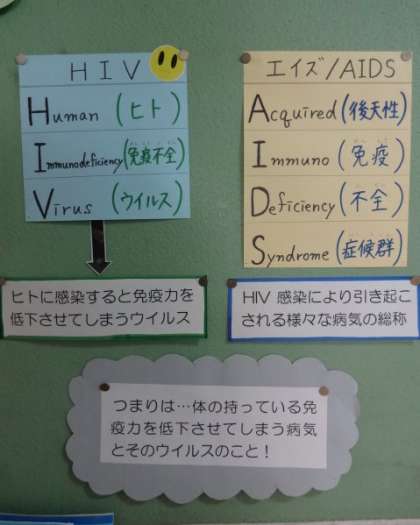 HIV
Human (ヒト)
Immunodeficiency (免疫不全)
Virus (ウイルス)
ヒトに感染すると免疫力を
低下させてしまうウイルス
エイズ/AIDS
Acquired (後天性)
Immuno (免疫)
Deficiency (不全)
Syndrome (症候群)
HIV 感染により引き起こ
される様々な病気の総称
つまりは…体の持っている免
疫力を低下させてしまう病気
とそのウイルスのこと！